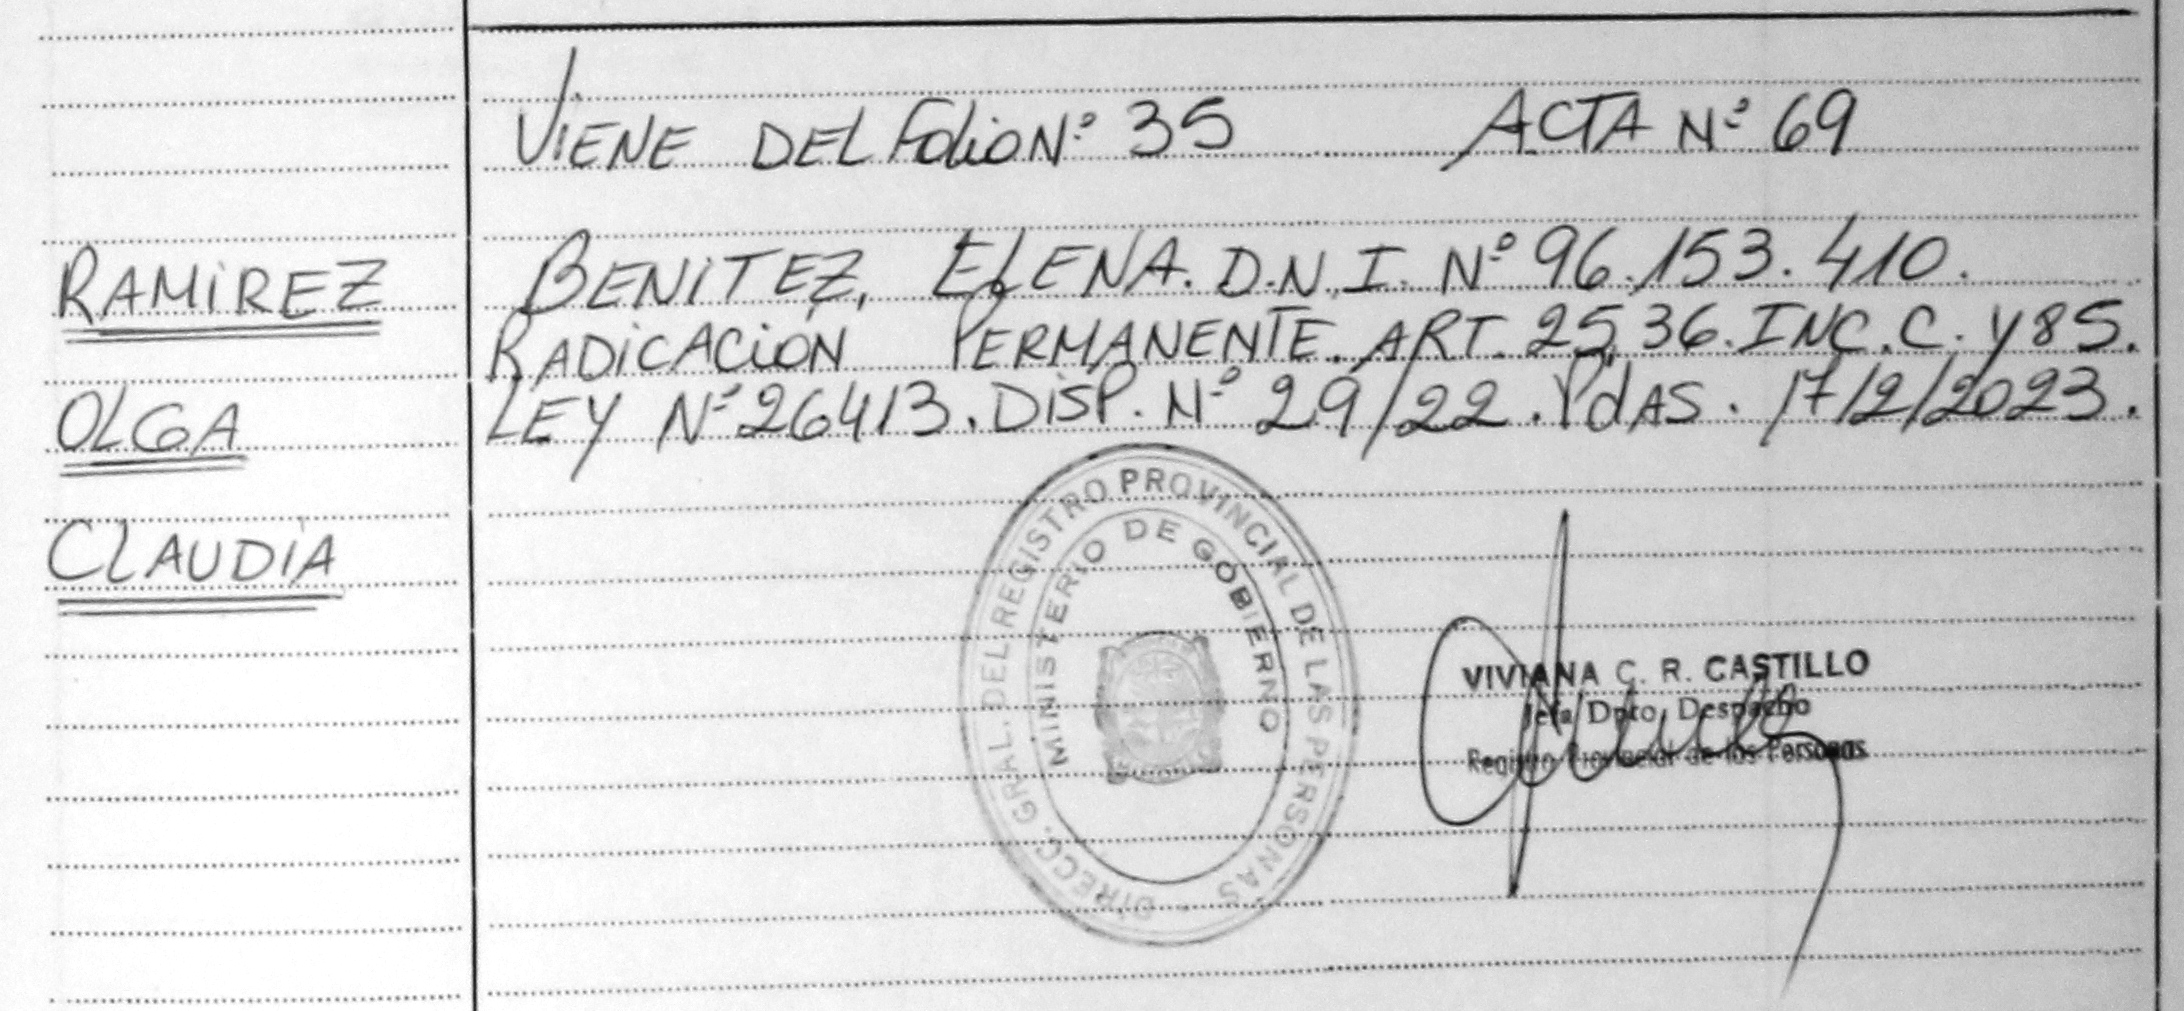 VIENE DEL Folio Nº 35 ACTA Nº 69
RAMIREZ
OLGA
CLAUDIA
BENITEZ, ELENA. D.N.I. Nº 96.153.410.
RADICACION PERMANENTE. ART. 25, 36. INC. C. Y 85.
LEY Nº 26413. DISP. Nº 29/22. PdAS. 17/2/2023.
DIRECC. GRAL. DEL REGISTRO PROVINCIAL DE LAS PERSONAS
MINISTERIO DE GOBIERNO
VIVIANA C. R. CASTILLO
Jefa Dpto. Despacho
Registro Provincial de las Personas